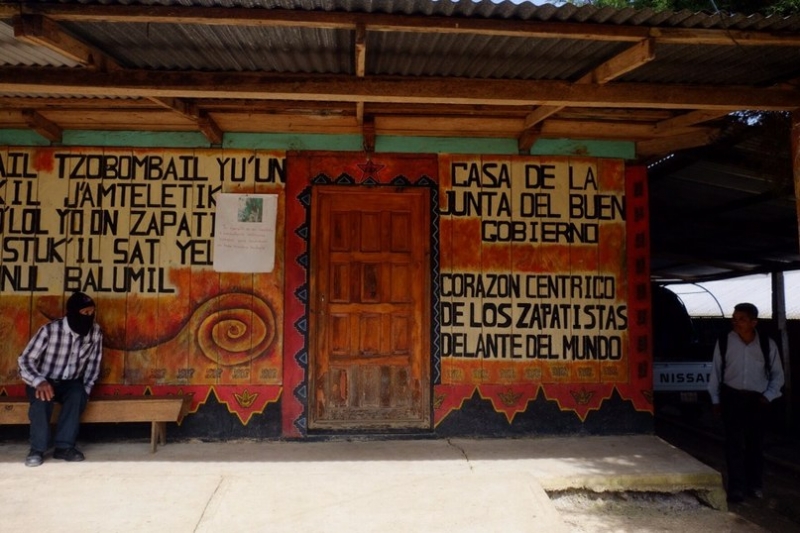 AIL TZOBOMBAIL YU'UN
K'IL J'AMTELETIK
O'LOL YO'ON ZAPATI
STUK'IL SAT YEL
NUL BALUMIL
CASA DE LA
JUNTA DEL BUEN
GOBIERNO
CORAZON CENTRICO
DE LOS ZAPATISTAS
DELANTE DEL MUNDO
NISSAN